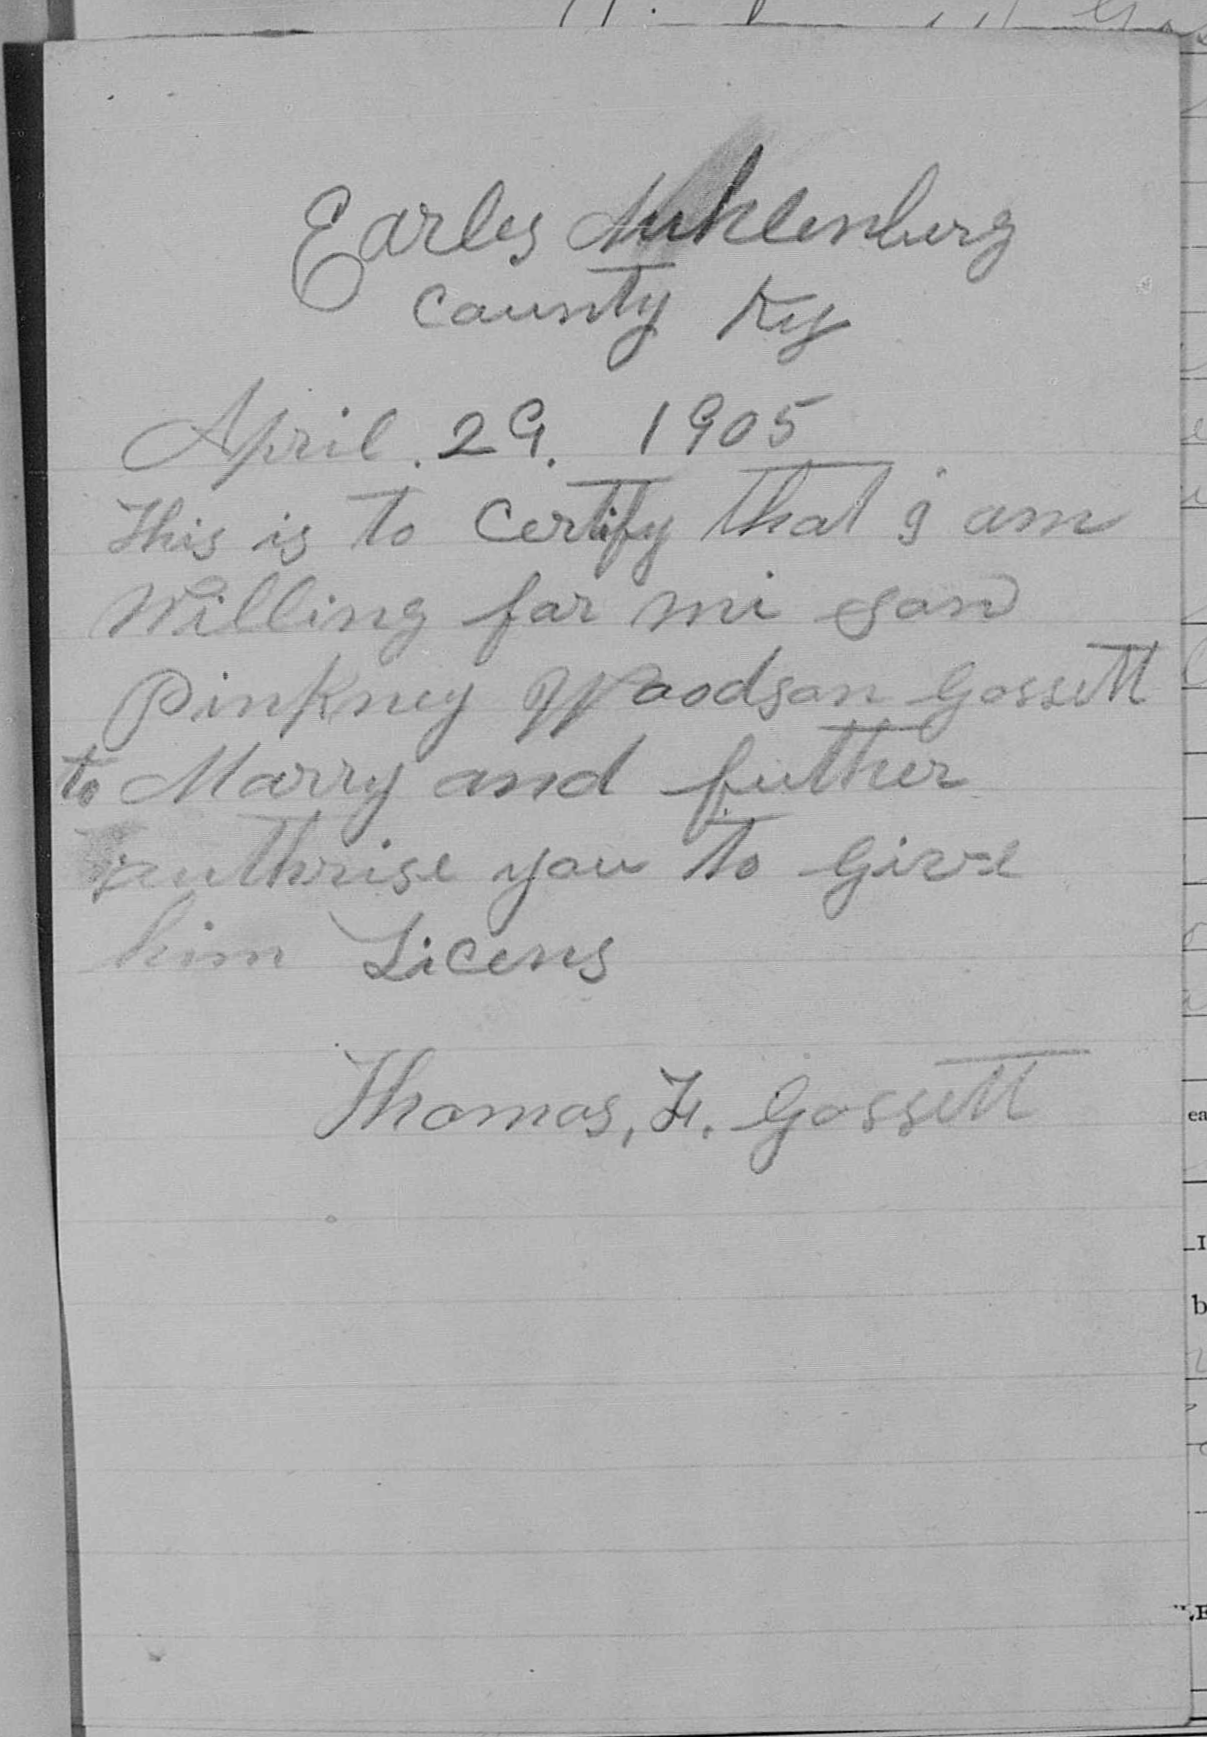 Earles Muhlenberg
County Ky
April. 29. 1905
This is to certify that i am
Willing for mi son
Pinkney Woodson Gossett
to Marry and futher
authrise you to give
him Licens
Thomas, F. Gossett